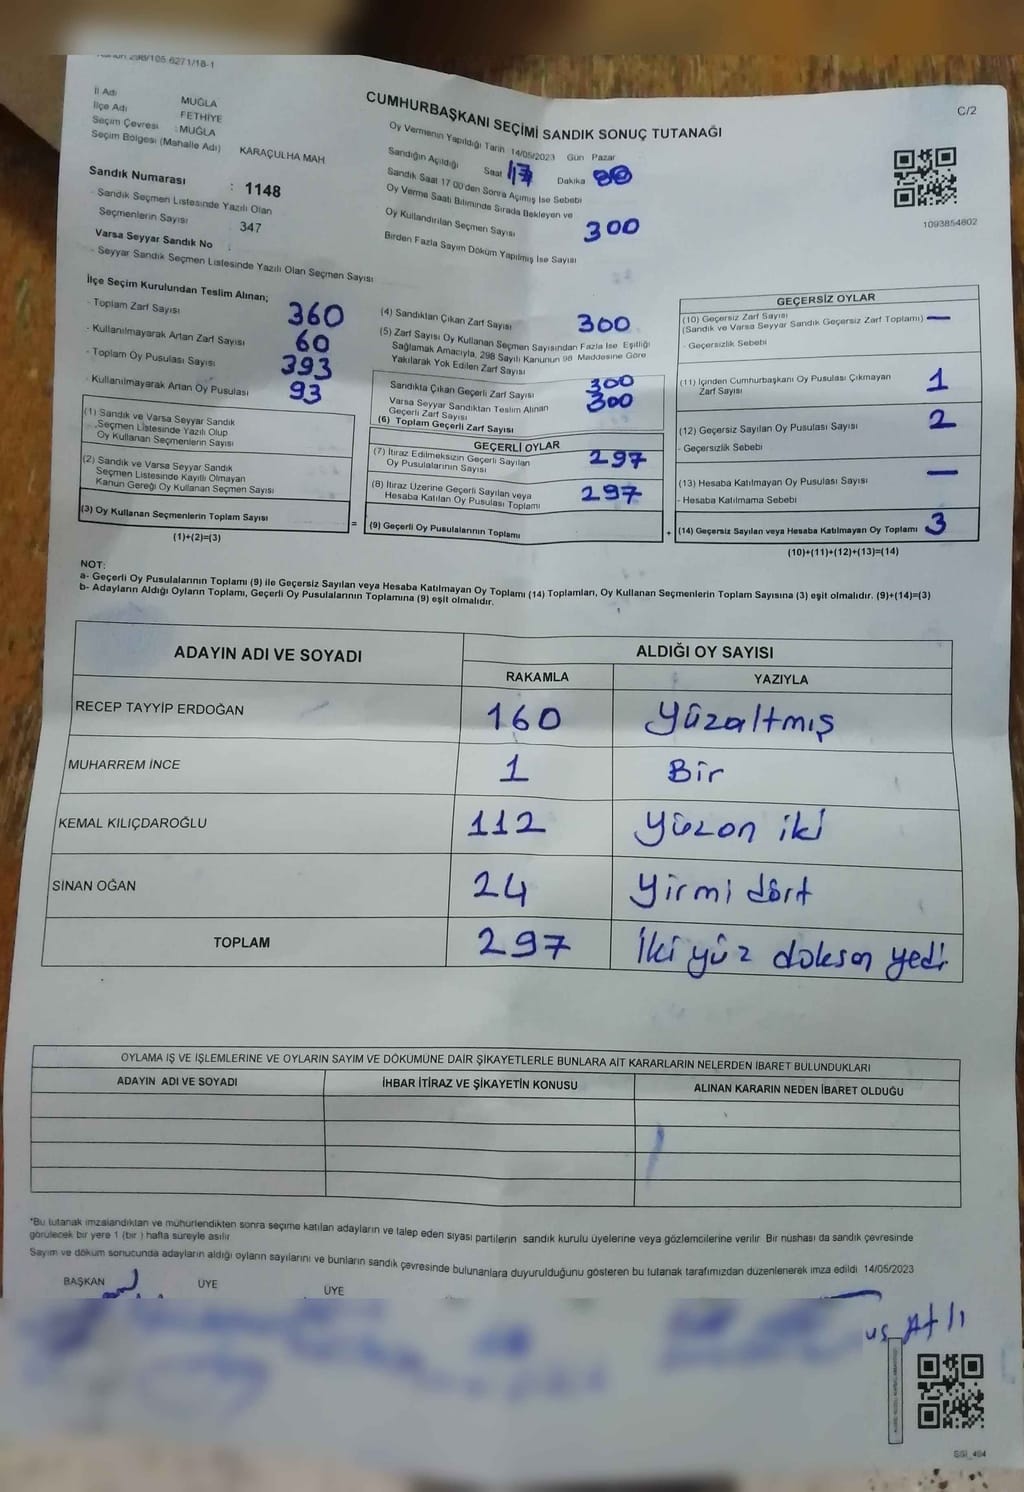 Kanun 298/105 6271/18-1
C/2
İl Adı MUĞLA
İlçe Adı FETHİYE
Seçim Çevresi : MUĞLA
Seçim Bölgesi (Mahalle Adı) KARAÇULHA MAH
CUMHURBAŞKANI SEÇİMİ SANDIK SONUÇ TUTANAĞI
Oy Vermenin Yapıldığı Tarih 14/05/2023 Gün Pazar
Sandığın Açıldığı Saat 17 Dakika
Sandık Saat 17 00'den Sonra Açımış İse Sebebi
Oy Verme Saati Bitiminde Sırada Bekleyen ve
Oy Kullandırılan Seçmen Sayısı 300
Birden Fazla Sayım Döküm Yapılmış İse Sayısı
1093854602
Sandık Numarası : 1148
- Sandık Seçmen Listesinde Yazılı Olan
Seçmenlerin Sayısı 347
Varsa Seyyar Sandık No :
- Seyyar Sandık Seçmen Listesinde Yazılı Olan Seçmen Sayısı
İlçe Seçim Kurulundan Teslim Alınan;
- Toplam Zarf Sayısı 360
- Kullanılmayarak Artan Zarf Sayısı 60
- Toplam Oy Pusulası Sayısı 393
- Kullanılmayarak Artan Oy Pusulası 93
(1) Sandık ve Varsa Seyyar Sandık
Seçmen Listesinde Yazılı Olup
Oy Kullanan Seçmenlerin Sayısı
(2) Sandık ve Varsa Seyyar Sandık
Seçmen Listesinde Kayıtlı Olmayan
Kanun Gereği Oy Kullanan Seçmen Sayısı
(3) Oy Kullanan Seçmenlerin Toplam Sayısı
(1)+(2)=(3)
=
(4) Sandıktan Çıkan Zarf Sayısı 300
(5) Zarf Sayısı Oy Kullanan Seçmen Sayısından Fazla İse Eşitliği
Sağlamak Amacıyla, 298 Sayılı Kanunun 98 Maddesine Göre
Yakılarak Yok Edilen Zarf Sayısı
Sandıkta Çıkan Geçerli Zarf Sayısı 300
Varsa Seyyar Sandıktan Teslim Alınan
Geçerli Zarf Sayısı 300
(6) Toplam Geçerli Zarf Sayısı
GEÇERLİ OYLAR
(7) İtiraz Edilmeksizin Geçerli Sayılan
Oy Pusulalarının Sayısı 297
(8) İtiraz Üzerine Geçerli Sayılan veya
Hesaba Katılan Oy Pusulası Toplamı 297
(9) Geçerli Oy Pusulalarının Toplamı
+
GEÇERSİZ OYLAR
(10) Geçersiz Zarf Sayısı —
(Sandık ve Varsa Seyyar Sandık Geçersiz Zarf Toplamı)
- Geçersizlik Sebebi
(11) İçinden Cumhurbaşkanı Oy Pusulası Çıkmayan
Zarf Sayısı 1
(12) Geçersiz Sayılan Oy Pusulası Sayısı 2
- Geçersizlik Sebebi
(13) Hesaba Katılmayan Oy Pusulası Sayısı —
- Hesaba Katılmama Sebebi
(14) Geçersiz Sayılan veya Hesaba Katılmayan Oy Toplamı 3
(10)+(11)+(12)+(13)=(14)
NOT:
a- Geçerli Oy Pusulalarının Toplamı (9) ile Geçersiz Sayılan veya Hesaba Katılmayan Oy Toplamı (14) Toplamları, Oy Kullanan Seçmenlerin Toplam Sayısına (3) eşit olmalıdır. (9)+(14)=(3)
b- Adayların Aldığı Oyların Toplamı, Geçerli Oy Pusulalarının Toplamına (9) eşit olmalıdır.
ADAYIN ADI VE SOYADI ALDIĞI OY SAYISI
RAKAMLA YAZIYLA
RECEP TAYYİP ERDOĞAN 160 Yüzaltmış
MUHARREM İNCE 1 Bir
KEMAL KILIÇDAROĞLU 112 Yüzon iki
SİNAN OĞAN 24 Yirmi dört
TOPLAM 297 İki yüz doksan yedi
OYLAMA İŞ VE İŞLEMLERİNE VE OYLARIN SAYIM VE DÖKÜMÜNE DAİR ŞİKAYETLERLE BUNLARA AİT KARARLARIN NELERDEN İBARET BULUNDUKLARI
ADAYIN ADI VE SOYADI İHBAR İTİRAZ VE ŞİKAYETİN KONUSU ALINAN KARARIN NEDEN İBARET OLDUĞU
*Bu tutanak imzalandıktan ve mühürlendikten sonra seçime katılan adayların ve talep eden siyasi partilerin sandık kurulu üyelerine veya gözlemcilerine verilir Bir nüshası da sandık çevresinde
görülecek bir yere 1 (bir ) hafta süreyle asılır
Sayım ve döküm sonucunda adayların aldığı oyların sayılarını ve bunların sandık çevresinde bulunanlara duyurulduğunu gösteren bu tutanak tarafımızdan düzenlenerek imza edildi 14/05/2023
BAŞKAN ÜYE ÜYE
us Atlı